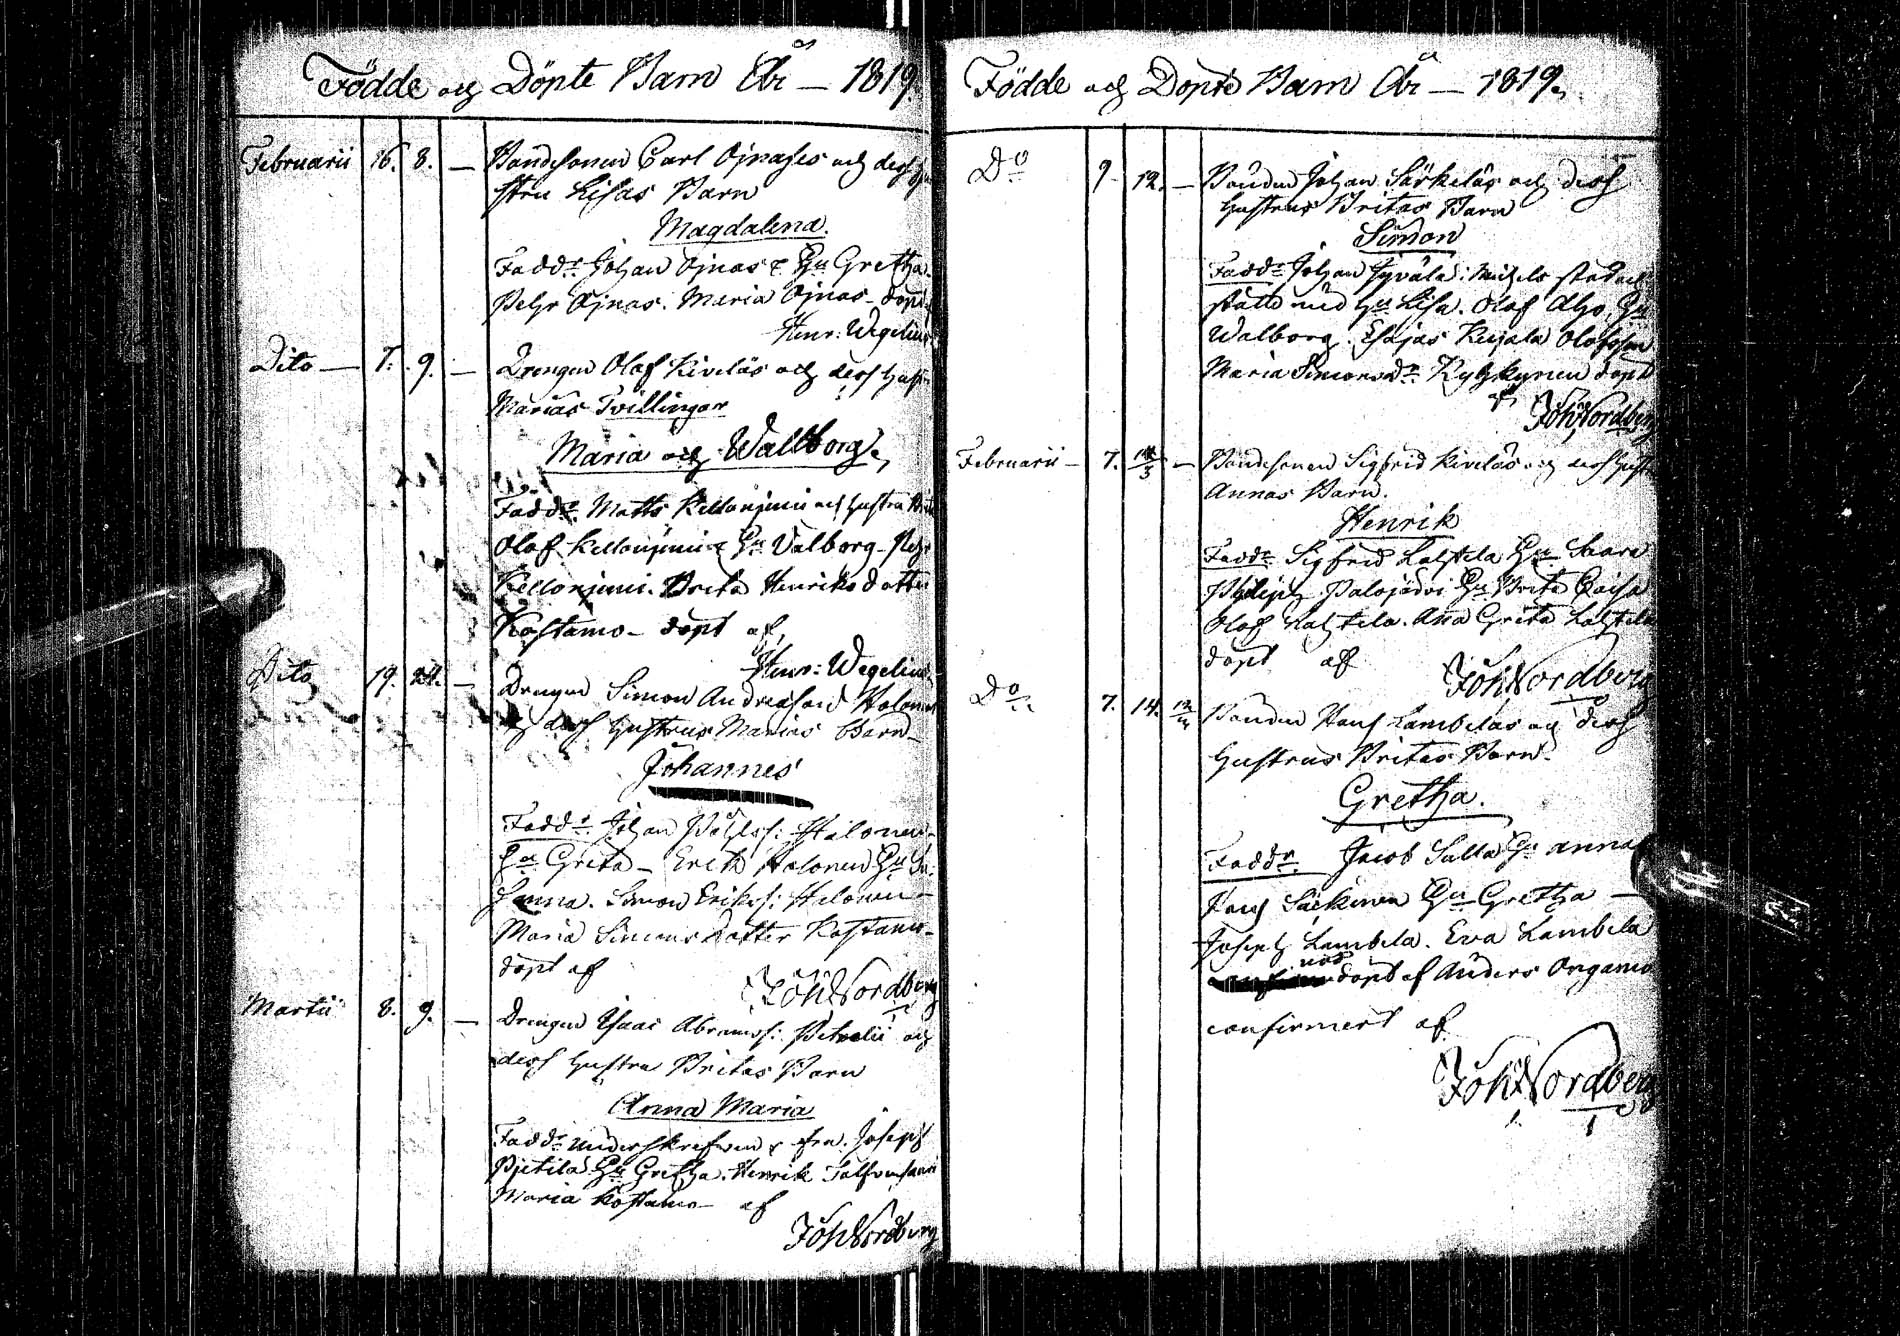 Födde och Döpte Barn År — 1819.
Februarii 16. 8. — Bondesonen Carl Ojnases och dess Hu
stru Lisas Barn
Magdalena.
Faddr Johan Ojnas & Hu Gretha.
Pehr Ojnas. Maria Ojnas - döpt af
Henr: Wegelius
Dito — 7. 9. — Drengen Olof Kiveläs och dess Hustru
Marias Tvillingar
Maria och Wallborg.
Faddr. Matts Kellonjemi och Hustru Brita
Olof Kellonjemi & Hu Valborg - Pehr
Kellonjemi. Brita Henriks dotter
Kostamo - döpt af,
Henr: Wegelius.
Dito 19. 24. — Drengen Simon Andreasson Halonens
och dess Hustrus Marias Barn -
Johannes
Faddr. Johan Påhlss: Halonen -
Hu Greta - Erik Halonen Hu Su:
sanna. Simon Erikss: Halonen -
Maria Simons dotter Kostamo -
döpt af
Joh Nordberg
Martii 8. 9. — Drengen Isaac Abramss: Petvelii och
dess Hustru Britas Barn
Anna Maria
Faddr underskrefven & fru. Joseph
Pjetilä Hu Gretha. Henrik
Maria Kostamo - af
Joh Nordberg
Födde och Döpte Barn År — 1819.
Do 9. 12. — Bonden Johan Särkeläs och dess
Hustrus Britas Barn
Simon
Faddr Johan Hyvälä: i Michels stad och
ställe med Hu Lisa. Olof Alho, Hu
Walborg. Eskjas Kujala Olofsson
Maria Simonsdr Kyhkynen döpt
af Joh Nordberg
Februarii — 7. 14/3 — Bondesonen Sigfrid Kiveläs och dess Hustru
Annas Barn.
Henrik
Faddr Sigfrid Lahtela Hu Saara
Philiph Palojärvi Hu Brita Caisa
Olof Lahtela. Ana Greta Lahtela
döpt af
Joh Nordberg
Do 7. 14. 12/4 Bonden Hans Lambeläs och dess
Hustrus Britas Barn -
Gretha.
Faddr. Jacob Salla Hu Anna
Hans Säkkinen Hu Gretha —
Joseph Lambela. Eva Lambela
nöd döpt af Anders Onganio
confirmert af
Joh Nordberg